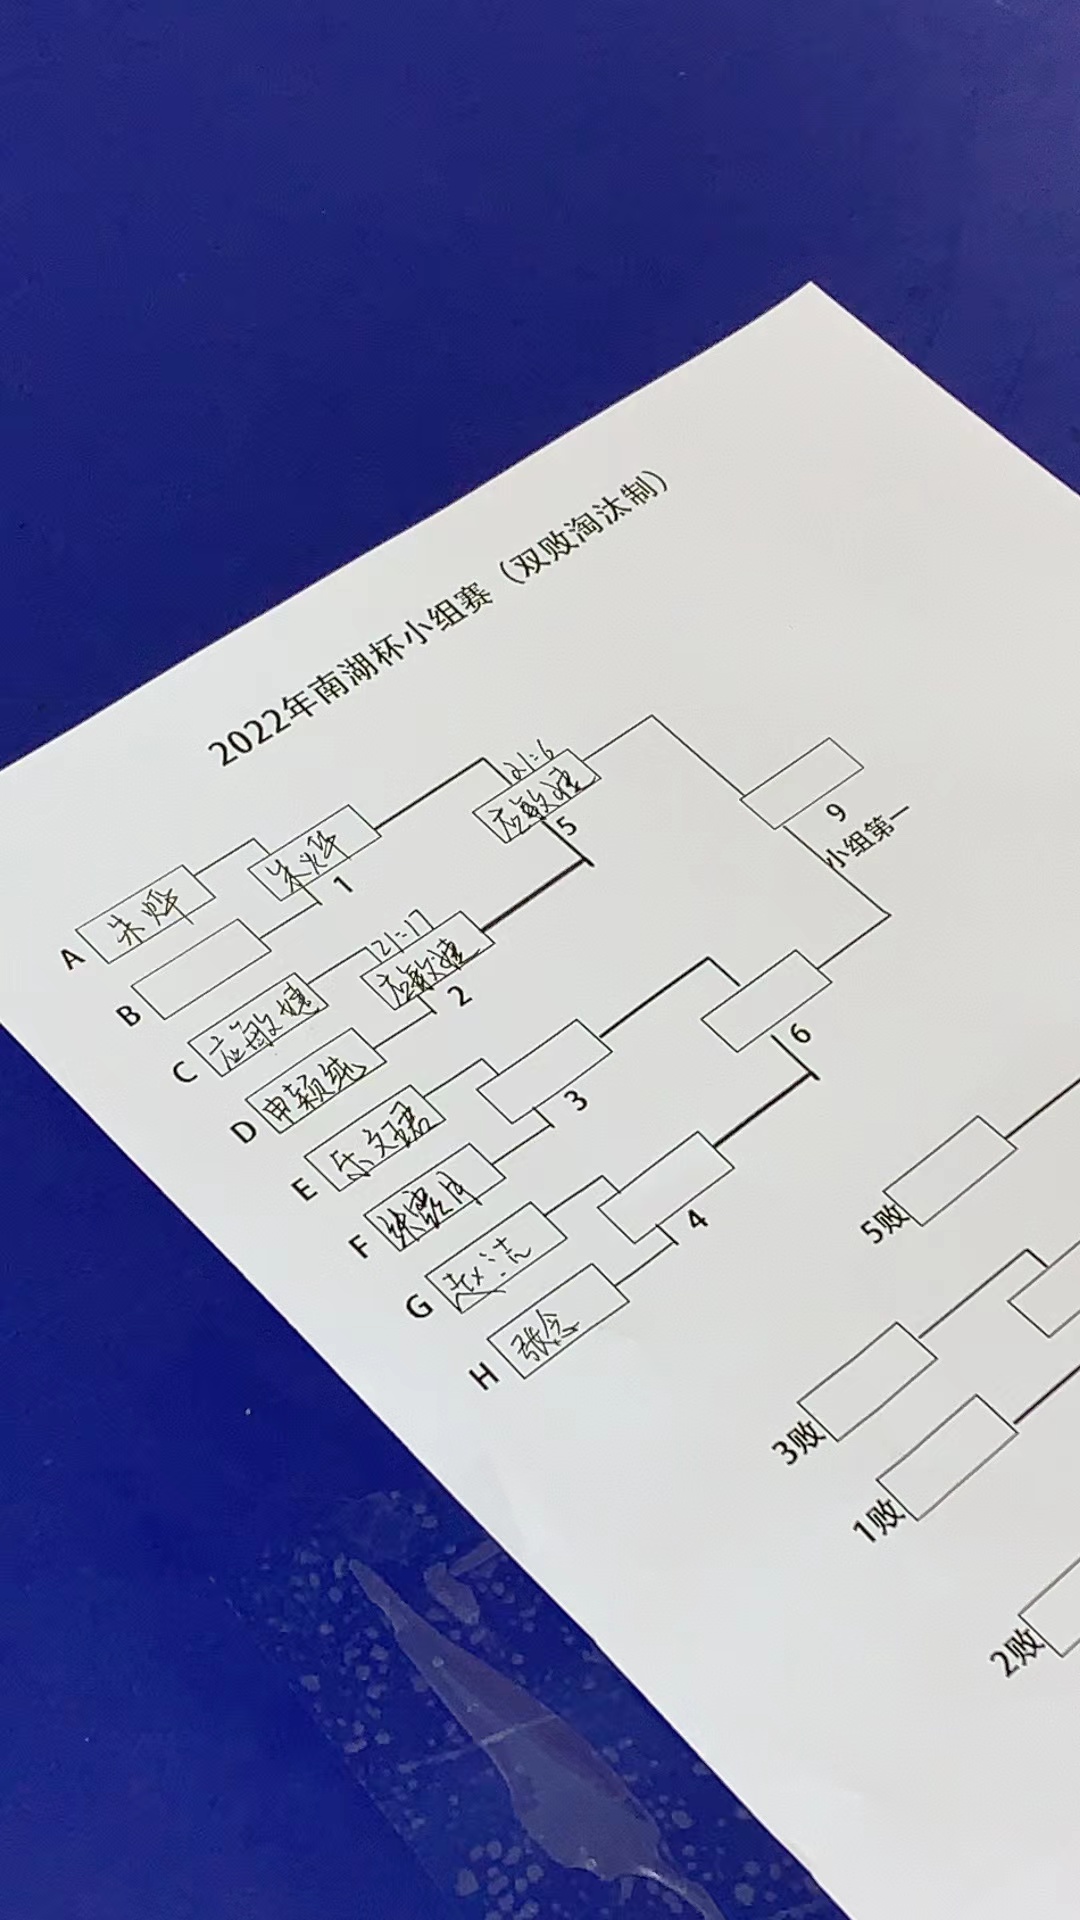 2022年南湖杯小组赛（双败淘汰制）
A 朱烨
B
C 应敏婕
D 申颖纯
E 乐文珺
F
G 赵洁
H 张念
朱烨
1
21:17
应敏婕
2
3
4
21:6
应敏婕
5
6
9
小组第一
5败
3败
1败
2败